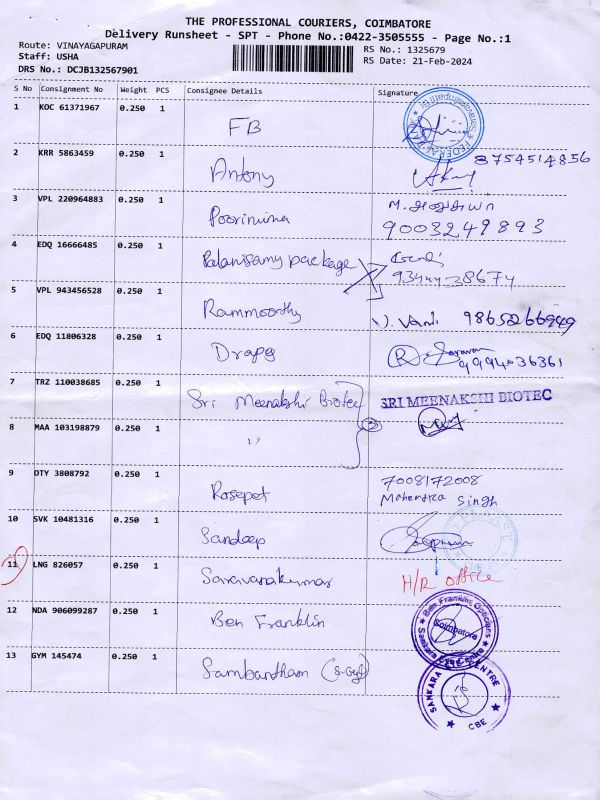 THE PROFESSIONAL COURIERS, COIMBATORE
Delivery Runsheet - SPT - Phone No.:0422-3505555 - Page No.:1
Route: VINAYAGAPURAM RS No.: 1325679
Staff: USHA RS Date: 21-Feb-2024
DRS No.: DCJB132567901
S No Consignment No Weight PCS Consignee Details Signature
1 KOC 61371967 0.250 1 FB
2 KRR 5863459 0.250 1 Antony 8754514856
3 VPL 220964883 0.250 1 Poornima M. அனுசுயா
9003249893
4 EDQ 16666485 0.250 1 Palanisamy package
5 VPL 943456528 0.250 1 Rammoorthy 9865266949
6 EDQ 11806328 0.250 1 Drapes 9994036361
7 TRZ 110038685 0.250 1 Sri Meenakshi Biotec SRI MEENAKSHI BIOTEC
8 MAA 103198879 0.250 1 "
9 DTY 3808792 0.250 1 Rosepet 7008172008
Mahendra Singh
10 SVK 10481316 0.250 1 Sandeep
11 LNG 826057 0.250 1 Saravanakumar H/R office
12 NDA 906099287 0.250 1 Ben Franklin Ben Franklin Opticians
Coimbatore
Sankara Eye Centre
13 GYM 145474 0.250 1 Sambantham SANKARA EYE CENTRE
CBE